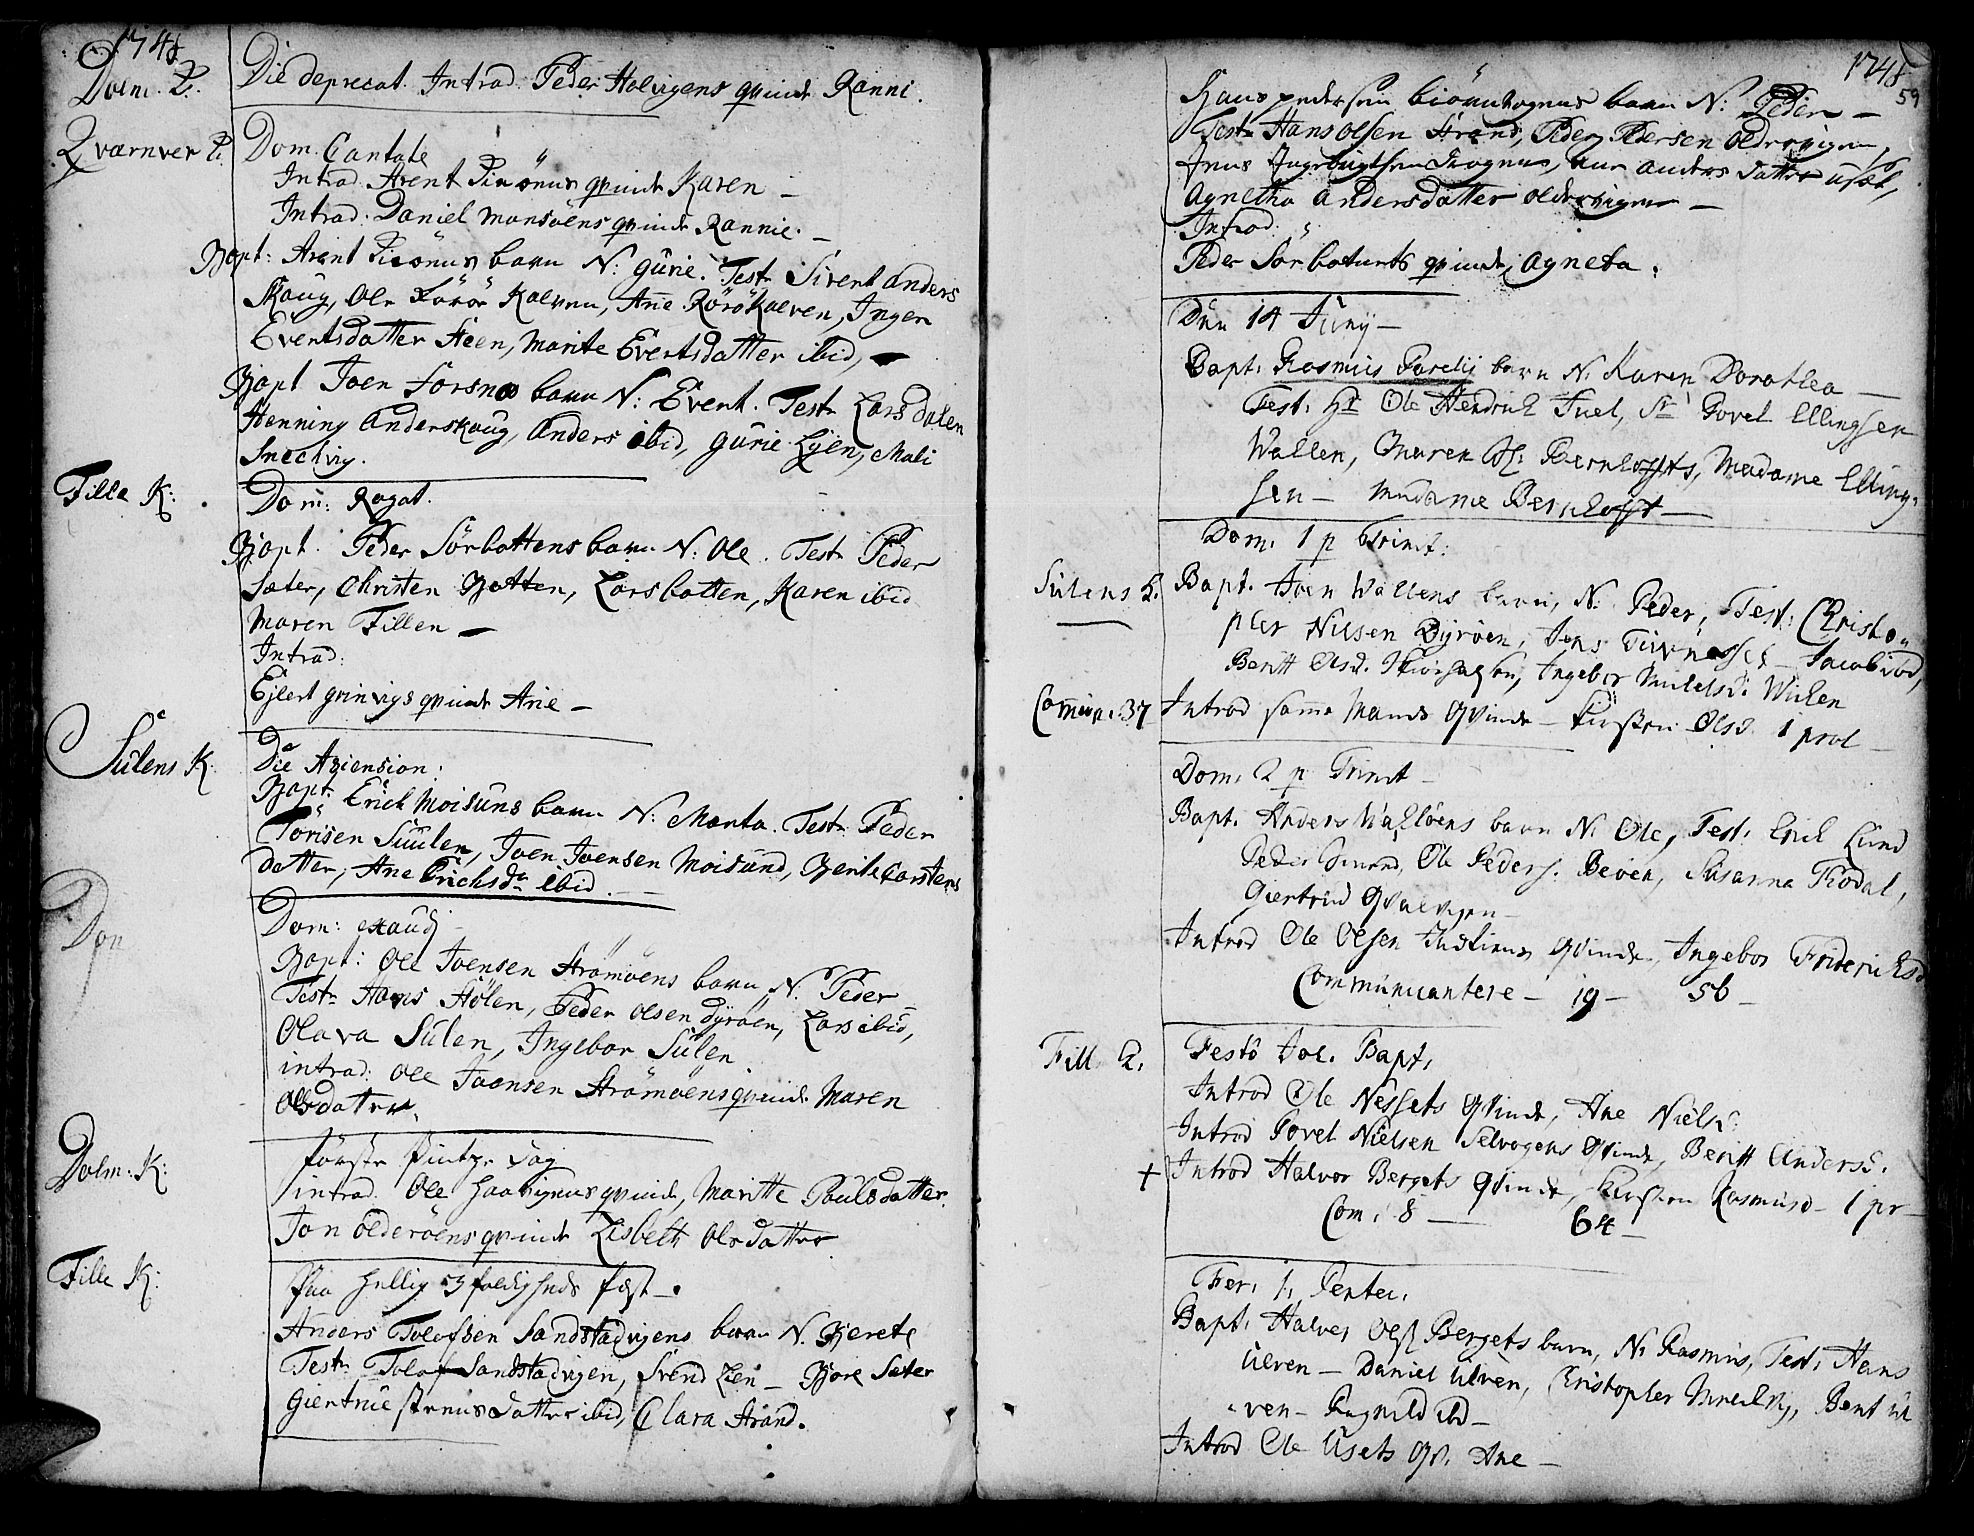 1748
Dolm. K.
Die deprecat. Introd. Peder Halvigens qvinde Ranni.
Qværnver K.
Dom. Cantate
Introd. Arent qvinde Karen –
Introd. Daniel Mansöens qvinde Rannie. –
Bapt: Arent barn N: Gurie. Test: Sivert Anders
Skaug, Ole Kalven, Ane Rörökalven, Inger
Evertsdatter Steen, Marite Evertsdatter ibid, –
Bapt Joen Forsnes barn N: Evert. Test: Lars dalen
Henning Anderskaug, Anders ibid, Gurie Lien, Mali
Snechvig.
Fille K:
Dom: Rogat.
Bapt. Peder Sörbottens barn N: Ole. Test: Peder
Sæter, Christen Botten, Lars botten, Karen ibid
Maren Fillen –
Introd:
Ejlert Grinvigs qvinde Ane –
Sulens K.
Die Ascension:
Bapt: Erich Moisunds barn N: Marta. Test: Peder
Törisen Suulen, Joen Joensen Moisund, Berite Carstens
datter, Ane Erichsdr ibid. –
Dom: exaudj
Bapt: Ole Joensen Strömöens barn N. Peder
Test: Hans Hölen, Peder Olsen Dyröen, Lars ibid,
Olava Sulen, Ingebor Sulen
introd: Ole Joensen Strömöens qvinde Maren
Olsdatter.
Dolm: K:
förste Pintze dag
introd. Ole qvinde, Maritte Poulsdatter.
Jon Olderöens qvinde Lisbeth Olsdatter
Fille K:
Paa hellig 3foldigheds fæst –.
Anders Tolofsen Sandstadvigens barn N. Berete
Test: Tolof Sandstadvigen, Svend Lien – Bjore Sæter
Giertrue datter ibid, Clara Strand.
1748
59
Hans pedersen barn N: Peder –
Test: Hans Olsen Strand, Peder Pedersen Oldervigen,
Jens Ingebrigtsen Anders datter
Agnetha Andersdatter Oldervigen –
Introd:
Peder Sörbotnets qvinde, Agneta.
Den 14 Junij –
Bapt: Rasmus Parelij barn N: Karen Dorothea –
Test: Hr Ole Hendrich Juel, Sr Povel Ellingsen
Wallen, Maren Sl: Bernhofts, Madame Elling-
sen – Madame Bernhoft –
Dom. 1 p Trinit:
Sulens K.
Bapt. Joen Wallens barn, N: Peder, Test: Christo-
pher Nilsen Dyröen, Jens – Jacob ibid,
Beritt Olsd. Ingebor Wichen
Comun: 37
Introd samme Mands Qvinde – Kirsten Olsd. 1 prol –
Dom. 2 p Trinit –
Bapt. Anders barn N. Ole, Test: Erich Lund
Peder Ole Peders. Beven, Susanna Trodal,
Giertrud Qvalvigen –
Introd Ole Olsen Qvinde, Ingebor Friderichsd
Communicantere – 19 – 56 –
Fill. K.
Festo Joh. Bapt.
Introd Ole Nessets Qvinde, Ane Nielsd:
Introd Povel Nielsen Selvogens Qvinde, Beritt Andersd.
+ Introd Halvor Bergets Qvinde, Kirsten Rasmusd – 1 pr –
Com: 8 – 64 –
Fer. 1. Pentec.
Bapt. Halvor Ols: Bergets barn, N: Rasmus, Test: Hans
Ulven – Daniel Ulven, Christopher Bent Ul
ven – Ragnild ibd –
Introd Ole Usets Qv. Ane –